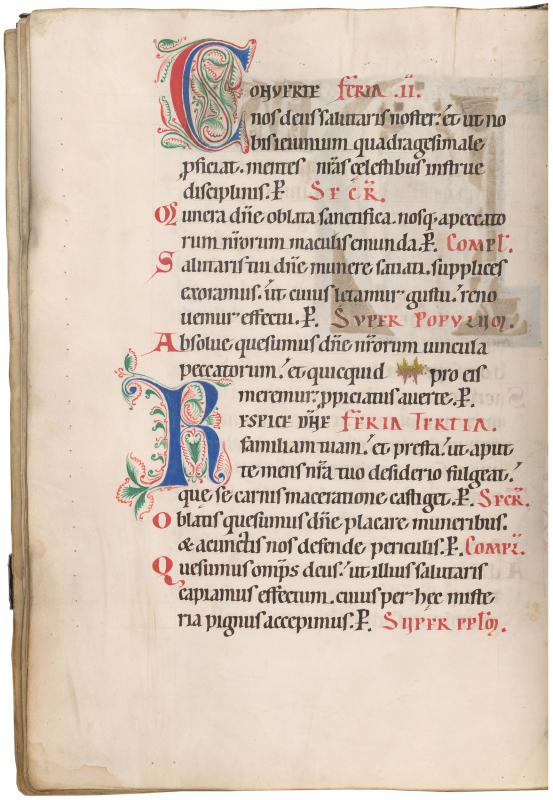 CONVERTE FERIA .II.
nos deus salutaris noster. et ut no
bis ieiunium quadragesimale
ꝓficiat. mentes nr̄as celestibus instrue
disciplinis. P. SECR̄.
Munera dn̄e oblata sanctifica. nosq. a peccato
rum nr̄orum maculis emunda. P. COMPL̄.
Salutaris tui dn̄e munere satiati. supplices
exoramus. ut cuius letamur gustu. reno
uemur effectu. P. SUPER POPULUM.
Absolue quesumus dn̄e nr̄orum uincula
peccatorum. et quicquid pro eis
meremur. ꝓpiciatus auerte. P.
RESPICE DN̄E FERIA TERTIA.
familiam tuam. et presta. ut aput
te mens nr̄a tuo desiderio fulgeat.
que se carnis maceratione castiget. P. SECR̄.
Oblatis quesumus dn̄e placare muneribus.
& a cunctis nos defende periculis. P. COMPL̄.
Quesumus omp̄s deus. ut illius salutaris
capiamus effectum. cuius per hec miste
ria pignus accepimus. P. SUPER PPL̄M.